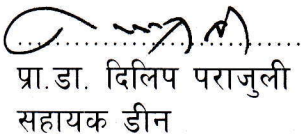 प्रा.डा. दिलिप पराजुली
सहायक डीन